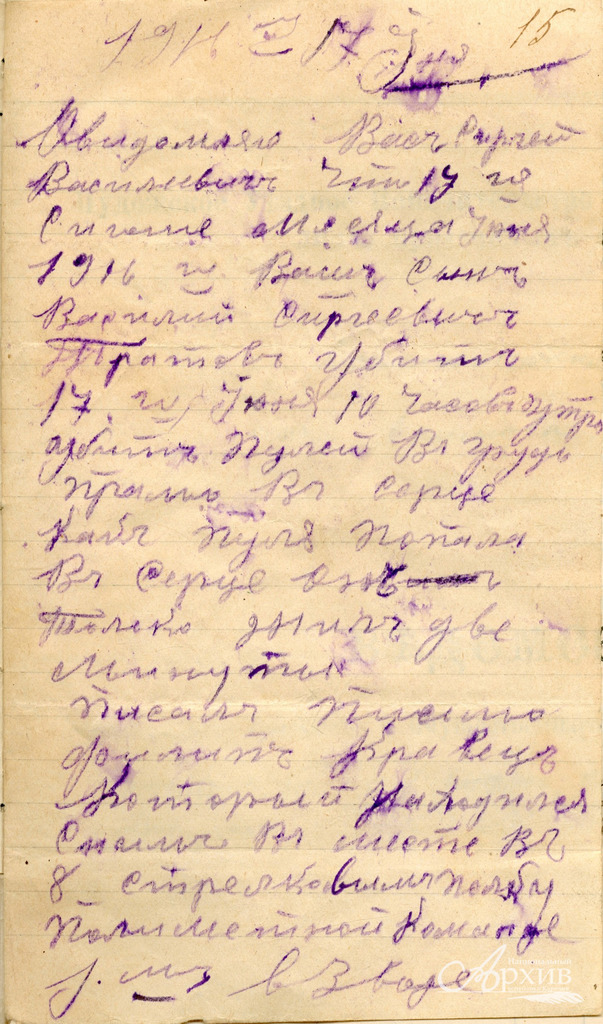 15
1916 г 17 Июня
Овидомляю Васъ Сиргей
Василиевичъ Что 17 го
Сиголе Месяца Июня
1916 г. Вашъ Сынъ
Василий Сиргеевичъ
убитъ
17 го Июня 10 часовъ утра
убитъ пулей Въ грудь
прамо Въ серце
Какъ пуля попала
Въ Серце онъ
только жилъ две
минуты
писалъ письмо
филипъ Кравецъ
Который находился
Снимъ Въ месте Въ
8 стрелковымъ полку
Полиметной Команде
взводе
Национальный
Архив